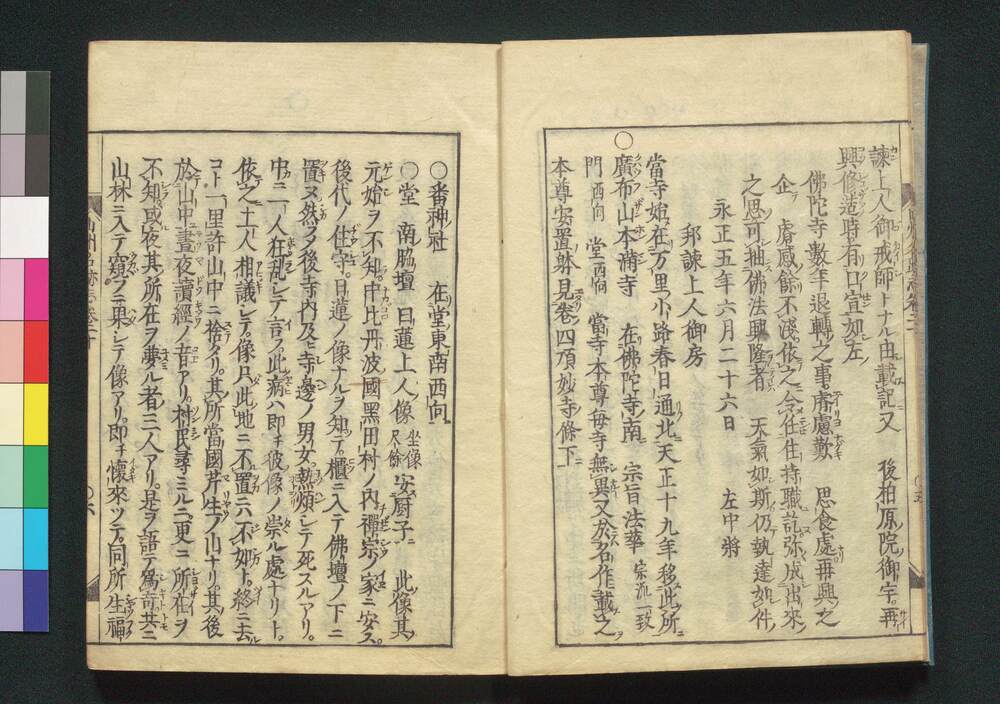 諫上人御戒師トナル由載記又　後柏原院御宇再
興修造時有口宣如左
佛陀寺數年退轉之事庸慮歎　思食處再興之
企　睿感餘不淺依之令任住持職訖弥成出來
之思可抽佛法興隆者　天氣如斯仍執達如件
永正五年六月二十六日　左中將
邦諫上人御房
當寺始在万里小路春日通北天正十九年移此所
〇廣布山本滿寺　在佛陀寺南　宗旨法華　宗派一致
門　西向　堂　西向　當寺本尊每寺無異又於名作載之
本尊安置躰見卷四頂妙寺條下
〇番神社　在堂東南西向
〇堂　南脇壇　日蓮上人像　坐像尺餘　安厨子　此像其
元始ヲ不知中比丹波國黑田村ノ內禪宗ノ家ニ安ス
後代ノ住守日蓮ノ像ナルヲ知テ櫃ニ入テ佛壇ノ下ニ
置ヌ然シテ後寺内及ヒ寺邊ノ男女熱煩シテ死スルアリ
中ニ一人狂乱シテ言フ此病ハ即チ彼像ノ崇ル處ナリト
依之土人相議シテ像只此地ニ不置ニハ不如ト終ニ去
コト一里許山中ニ捨タリ其所當國芹生ノ山ナリ其後
於山中晝夜讀經ノ音アリ村民尋ミルニ更ニ所在ヲ
不知或夜其所在ヲ夢ル者三人アリ是ヲ語テ爲奇共ニ
山林ニ入テ窺フニ果シテ像アリ即チ懷來ツテ同所生福